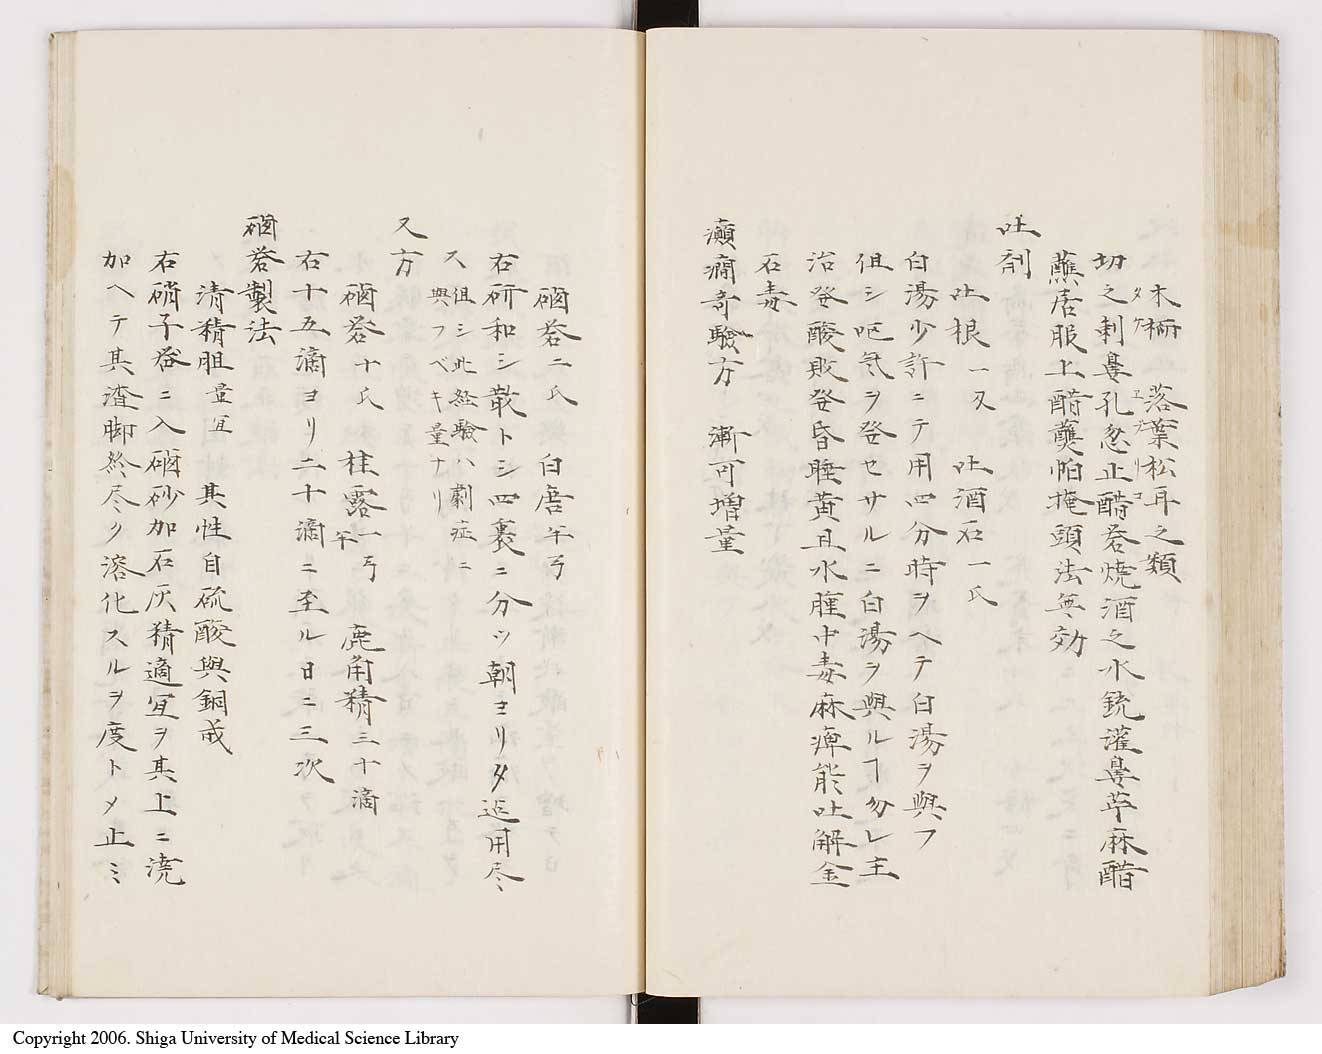 木槲 落葉松耳之類
切之刺鼻孔忽止醋菪焼酒之水銃灌鼻苹麻醋
蘸居服上醋蘸帕掩頭法無効
吐剤
吐根 一刄 吐酒石一氏
白湯少許ニテ用四分時ヲヘテ白湯ヲ與フ
但シ嘔気ヲ発セサルニ白湯ヲ與ルヿ勿レ主
治発酸敗発昏睡黄且水腫中毒麻痺能吐解金
石毒
癲癇奇験方 漸可増量
硇 二氏 白唐 半弓
右研和シ散トシ四裹ニ分ツ朝ヨリ夕迄用尽
ス但シ此経験ハ劇症ニ
與フベキ量ナリ
又方
硇 十氏 桂露一弓半 鹿角精三十滴
右十五滴ヨリ二十滴ニ至ル日ニ三次
硇 製法
清精胆 量宜 其性自硫酸與銅成
右硝子 ニ入硇砂加石灰精適宜ヲ其上ニ澆
加ヘテ其渣脚終尽ク溶化スルヲ度トメ止ミ
Copyright 2006. Shiga University of Medical Science Library